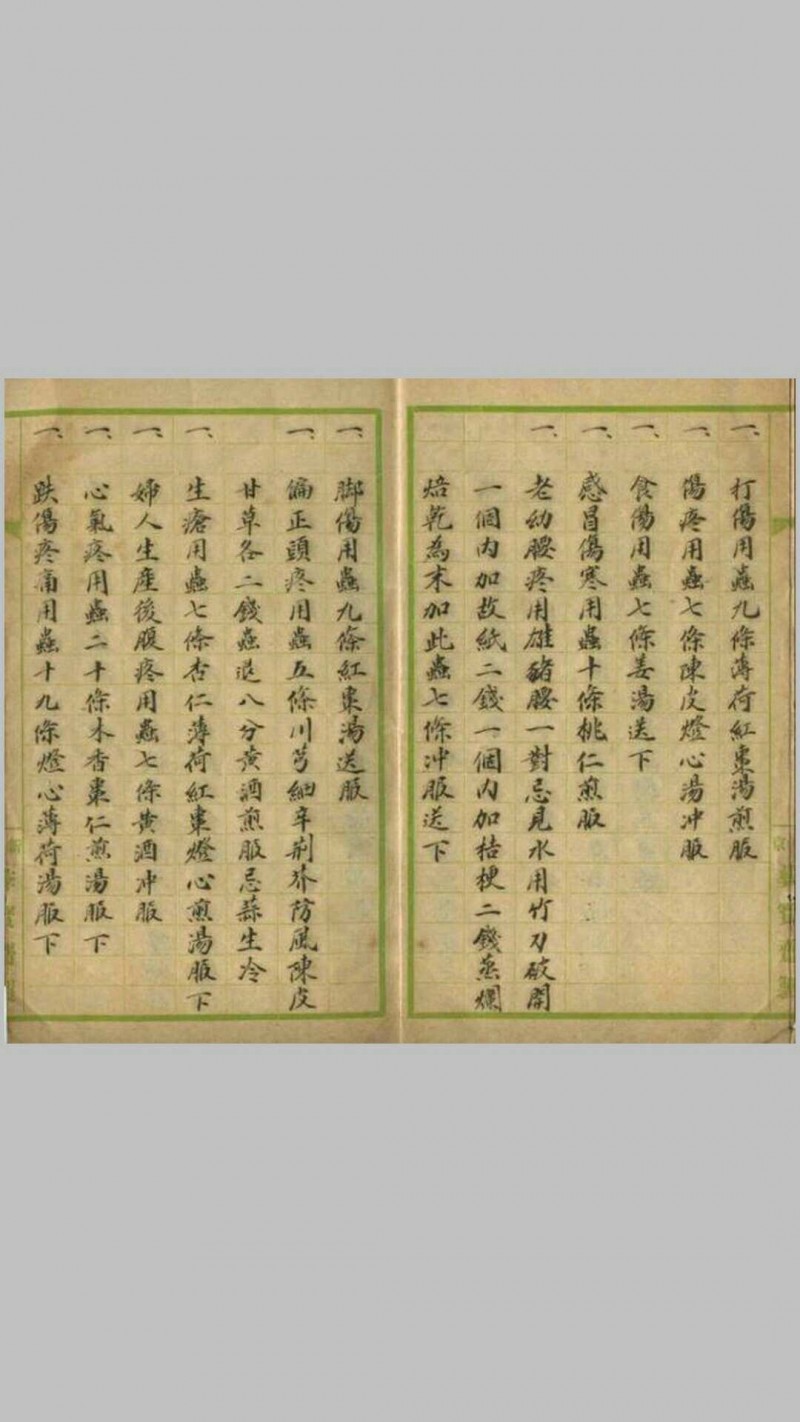 一、打傷用蟲九條薄荷紅棗湯煎服
一、傷疼用蟲七條陳皮燈心湯冲服
一、食傷用蟲七條姜湯送下
一、感冒傷寒用蟲十條桃仁煎服
一、老幼腰疼用雄豬腰一對忌見水用竹刀破開
一個内加故紙二錢一個内加桔梗二錢蒸爛
焙乾為末加此蟲七條冲服送下
一、脚傷用蟲九條紅棗湯送服
一、偏正頭疼用蟲五條川芎細辛荆芥防風陳皮
甘草各二錢蟲退八分黄酒煎服忌蒜生冷
一、生瘡用蟲七條杏仁薄荷紅棗燈心煎湯服下
一、婦人生產後腹疼用蟲七條黄酒冲服
一、心氣疼用蟲二十條木香棗仁煎湯服下
一、跌傷疼痛用蟲十九條燈心薄荷湯服下